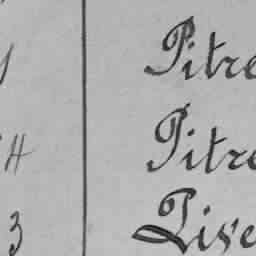 Pitre
H Pitre
3 Live